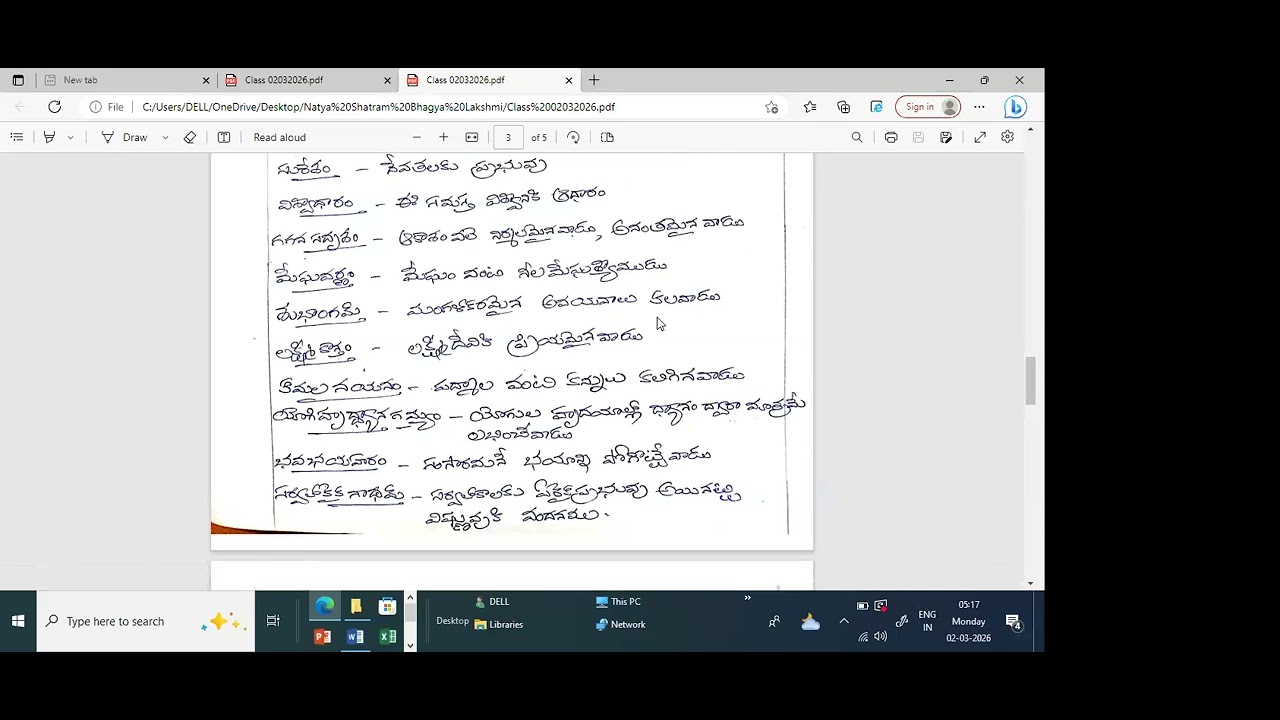 New tab
Class 02032026.pdf
Class 02032026.pdf
File
C:/Users/DELL/OneDrive/Desktop/Natya%20Shatram%20Bhagya%20Lakshmi/Class%2002032026.pdf
Sign in
Draw
Read aloud
3 of 5
సురేశం – దేవతలకు ప్రభువు
విశ్వాధారం – ఈ సమస్త విశ్వానికి ఆధారం
గగన సదృశం – ఆకాశం వలె నిర్మలమైనవాడు, అనంతమైన వాడు
మేఘవర్ణం – మేఘం వంటి నీలమేఘశ్యాముడు
శుభాంగమ్ – మంగళకరమైన అవయవాలు కలవాడు
లక్ష్మీకాంతం – లక్ష్మీదేవికి ప్రియమైనవాడు
కమల నయనం – పద్మాల వంటి కన్నులు కలిగినవాడు
యోగిహృద్ధ్యానగమ్యం – యోగుల హృదయాల్లో ధ్యానం ద్వారా మాత్రమే
లభించేవాడు
భవభయహరం – సంసారమనే భయాన్ని పోగొట్టేవాడు
సర్వలోకైక నాథమ్ – సర్వలోకాలకు ఏకైకప్రభువు అయినట్టి
విష్ణువుకి వందనము.
Type here to search
Desktop
DELL
Libraries
This PC
Network
ENG
IN
05:17
Monday
02-03-2026
4